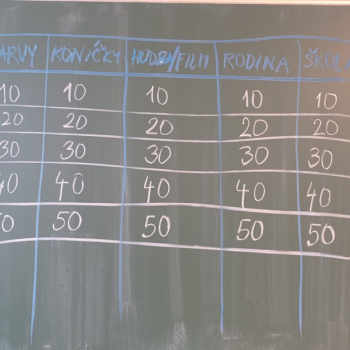 ARVY KONÍČKY HUDBA/FILM RODINA ŠKOL
10 10 10 10 10
20 20 20 20 20
30 30 30 30 30
40 40 40 40 40
50 50 50 50 50